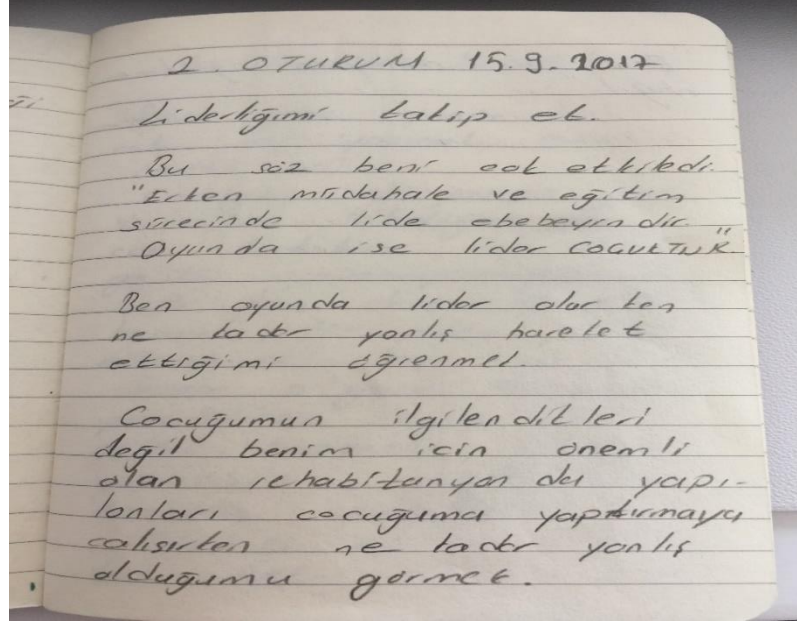 2. OTURUM 15.9.2017
Liderliğimi takip et.
Bu söz beni çok etkiledi.
"Erken müdahale ve eğitim
sürecinde lide ebebeyndir.
Oyunda ise lider ÇOCUKTUR."
Ben oyunda lider olurken
ne kadar yanlış hareket
ettiğimi öğrenmek.
Cocuğumun ilgilendikleri
değil benim için önemli
olan rehabitasyon da yapı-
lanları cocuğuma yaptırmaya
calışırken ne kadar yanlış
olduğumu görmek.